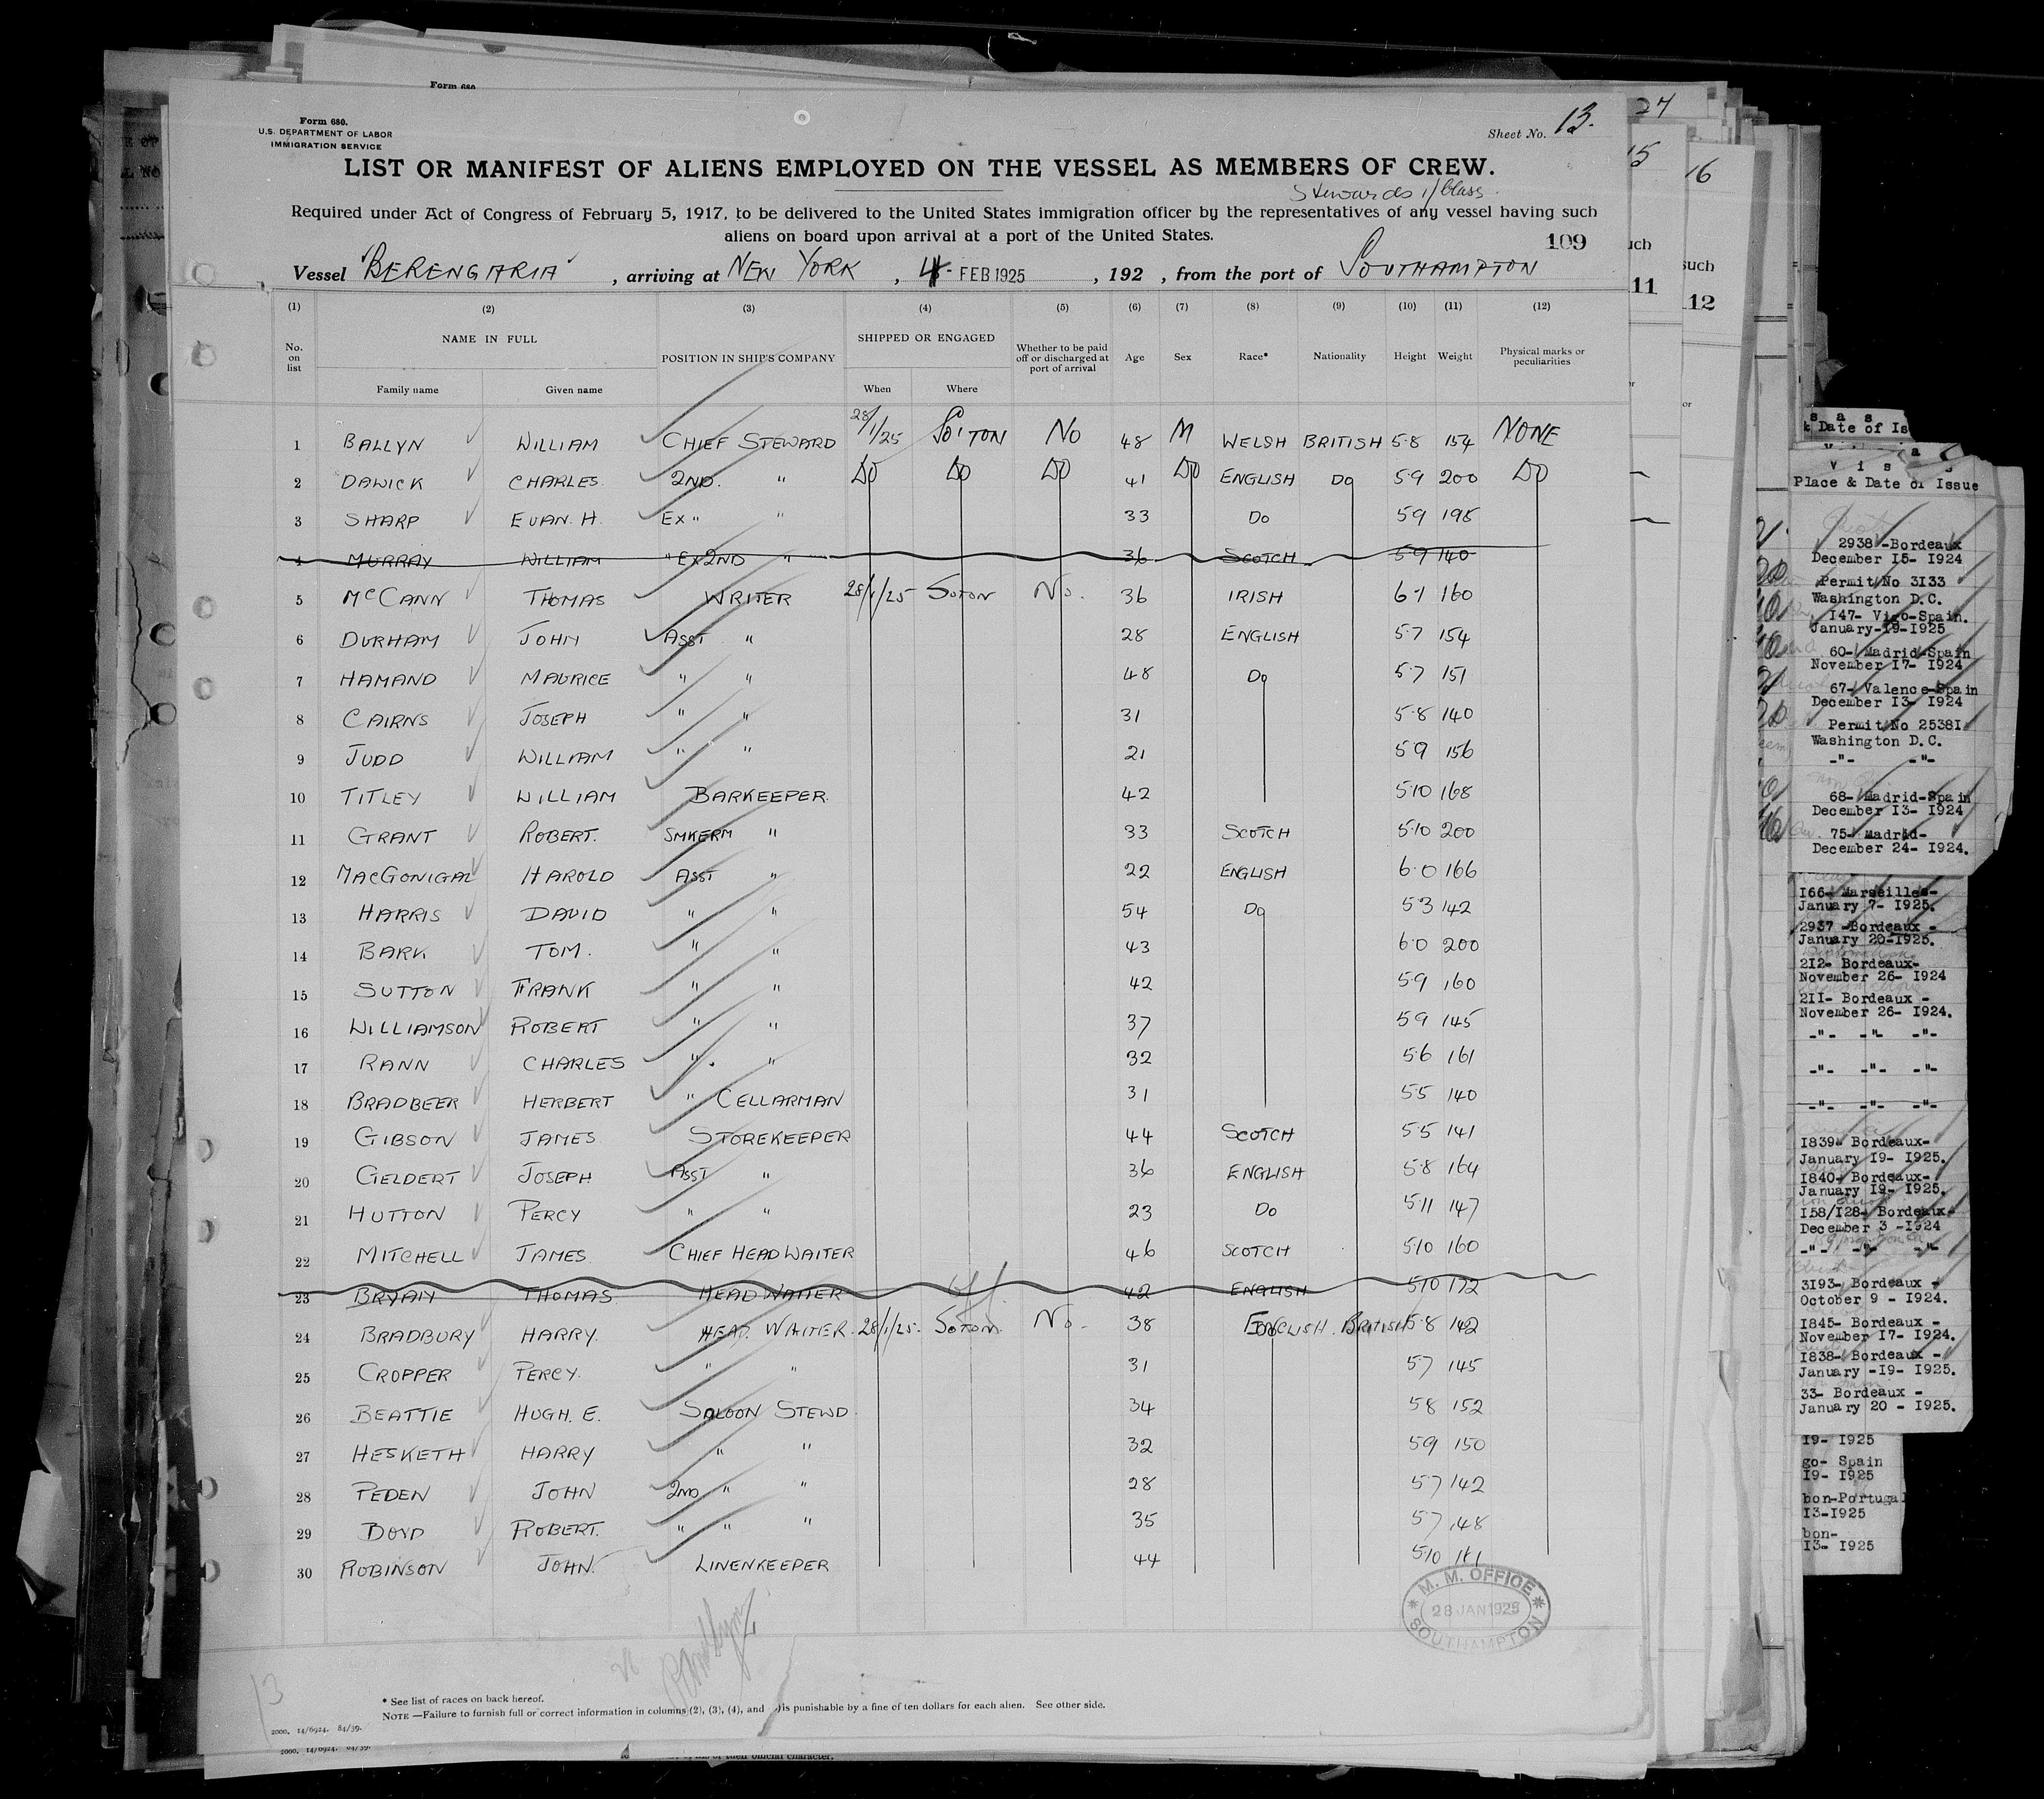 Form 680.
Form 680.
U.S. DEPARTMENT OF LABOR
IMMIGRATION SERVICE
Sheet No. 13.
LIST OR MANIFEST OF ALIENS EMPLOYED ON THE VESSEL AS MEMBERS OF CREW.
Stewards 1/Class
Required under Act of Congress of February 5, 1917, to be delivered to the United States immigration officer by the representatives of any vessel having such
aliens on board upon arrival at a port of the United States.
109
Vessel "BERENGARIA", arriving at NEW YORK, 4 FEB 1925, 192 , from the port of SOUTHAMPTON
(1) (2) (3) (4) (5) (6) (7) (8) (9) (10) (11) (12)
No. on list NAME IN FULL POSITION IN SHIP'S COMPANY SHIPPED OR ENGAGED Whether to be paid off or discharged at port of arrival Age Sex Race* Nationality Height Weight Physical marks or peculiarities
Family name Given name When Where
1 BALLYN WILLIAM CHIEF STEWARD 28/1/25 SO'TON NO 48 M WELSH BRITISH 5·8 154 NONE
2 DAWICK CHARLES. 2ND. " DO DO DO 41 DO ENGLISH DO 5·9 200 DO
3 SHARP EVAN. H. EX " " 33 DO 5·9 198
4 MURRAY WILLIAM " EX 2ND " 36 SCOTCH 5·9 140
5 McCANN THOMAS WRITER 28/1/25 SOTON No. 36 IRISH 6·1 160
6 DURHAM JOHN ASST " 28 ENGLISH 5·7 154
7 HAMAND MAURICE " " 48 DO 5·7 151
8 CAIRNS JOSEPH " " 31 5·8 140
9 JUDD WILLIAM " " 21 5·9 156
10 TITLEY WILLIAM BARKEEPER. 42 5·10 168
11 GRANT ROBERT. SMKERM " 33 SCOTCH 5·10 200
12 MACGONIGAL HAROLD ASST " 22 ENGLISH 6·0 166
13 HARRIS DAVID " " 54 DO 5·3 142
14 BARK TOM. " " 43 6·0 200
15 SUTTON FRANK " " 42 5·9 160
16 WILLIAMSON ROBERT " " 37 5·9 145
17 RANN CHARLES " " 32 5·6 161
18 BRADBEER HERBERT " CELLARMAN 31 5·5 140
19 GIBSON JAMES STOREKEEPER 44 SCOTCH 5·5 141
20 GELDERT JOSEPH ASST " 36 ENGLISH 5·8 164
21 HUTTON PERCY " " 23 DO 5·11 147
22 MITCHELL JAMES CHIEF HEADWAITER 46 SCOTCH 5·10 160
23 BRYAN THOMAS HEADWAITER 42 ENGLISH 5·10 172
24 BRADBURY HARRY. HEAD WAITER. 28/1/25. SOTON. No. 38 ENGLISH. BRITISH 5·8 142
25 CROPPER PERCY. " " 31 5·7 145
26 BEATTIE HUGH. E. SALOON STEWD. 34 5·8 152
27 HESKETH HARRY " " 32 5·9 150
28 PEDEN JOHN 2ND " " 28 5·7 142
29 BOYD ROBERT. " " " 35 5·7 148
30 ROBINSON JOHN. LINENKEEPER 44 5·10
M. M. OFFICE
28 JAN 1925
SOUTHAMPTON
13
* See list of races on back hereof.
NOTE —Failure to furnish full or correct information in columns (2), (3), (4), and is punishable by a fine of ten dollars for each alien. See other side.
2000. 14/6924. 84/39.
2000. 14/6924. 84/39.
of their official character.
27
15
16
uch
such
11
12
or
s a s
& Date of Is
V i s
Place & Date of Issue
2938 -Bordeaux
December 15- 1924
Permit No 3133
Washington D.C.
147- Vigo-Spain.
January-19-1925
60- Madrid-Spain
November 17- 1924
67- Valence-Spain
December 13- 1924
Permit No 25381
Washington D.C.
-"- -"-
68- Madrid-Spain
December 13- 1924
75- Madrid-
December 24- 1924.
166- Marseilles-
January 7- 1925.
2937 -Bordeaux -
January 20-1925.
212- Bordeaux-
November 26- 1924
211- Bordeaux -
November 26- 1924.
-"- -"- -"-
-"- -"- -"-
-"- -"- -"-
1839- Bordeaux-
January 19- 1925.
1840- Bordeaux-
January 19- 1925.
158/128- Bordeaux-
December 3 -1924
-"- -"- -"-
3193- Bordeaux -
October 9 - 1924.
1845- Bordeaux -
November 17- 1924.
1838- Bordeaux -
January -19- 1925.
33- Bordeaux -
January 20 - 1925.
19- 1925
go- Spain
19- 1925
bon-Portugal
13-1925
bon-
13- 1925